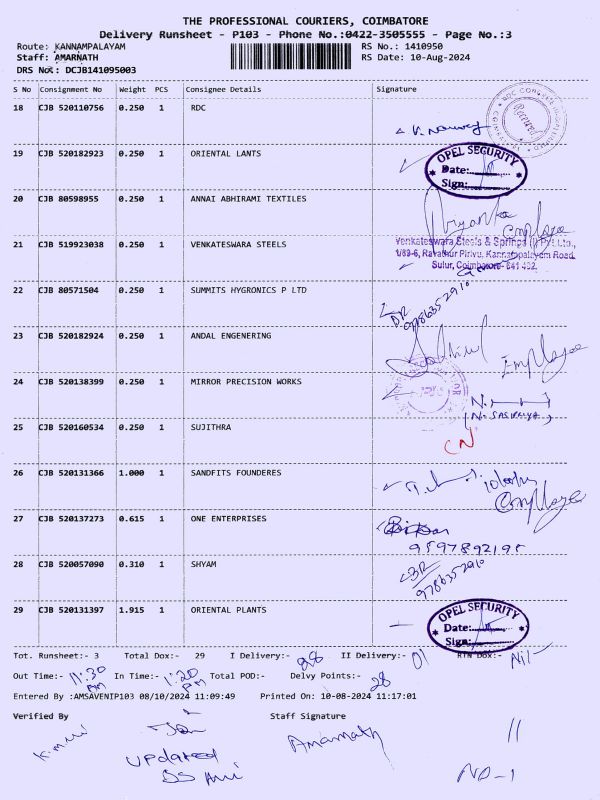 THE PROFESSIONAL COURIERS, COIMBATORE
Delivery Runsheet - P103 - Phone No.:0422-3505555 - Page No.:3
Route: KANNAMPALAYAM RS No.: 1410950
Staff: AMARNATH RS Date: 10-Aug-2024
DRS No: DCJB141095003
S No Consignment No Weight PCS Consignee Details Signature
18 CJB 520110756 0.250 1 RDC
19 CJB 520182923 0.250 1 ORIENTAL LANTS
OPEL SECURITY
Date:
Sign:
20 CJB 80598955 0.250 1 ANNAI ABHIRAMI TEXTILES
Employee
21 CJB 519923038 0.250 1 VENKATESWARA STEELS
Venkateswara Steels & Springs (I) Pvt Ltd.,
1/89-6, Ravathur Pirivu, Kannampalayam Road,
Sulur, Coimbatore- 641 402.
22 CJB 80571504 0.250 1 SUMMITS HYGRONICS P LTD
BR
9786352910
23 CJB 520182924 0.250 1 ANDAL ENGENERING
Employee
24 CJB 520138399 0.250 1 MIRROR PRECISION WORKS
25 CJB 520160534 0.250 1 SUJITHRA
CN
26 CJB 520131366 1.000 1 SANDFITS FOUNDERES
Employee
27 CJB 520137273 0.615 1 ONE ENTERPRISES
9597892195
28 CJB 520057090 0.310 1 SHYAM
BR
9786352910
29 CJB 520131397 1.915 1 ORIENTAL PLANTS
OPEL SECURITY
Date:
Sign:
Tot. Runsheet:- 3 Total Dox:- 29 I Delivery:- 28 II Delivery:- 01 RTN Dox:- Nil
Out Time:- 11:30 AM In Time:- 1:20 PM Total POD:- Delvy Points:- 28
Entered By :AMSAVENIP103 08/10/2024 11:09:49 Printed On: 10-08-2024 11:17:01
Verified By Staff Signature
Amarnath
Updated
ND-1